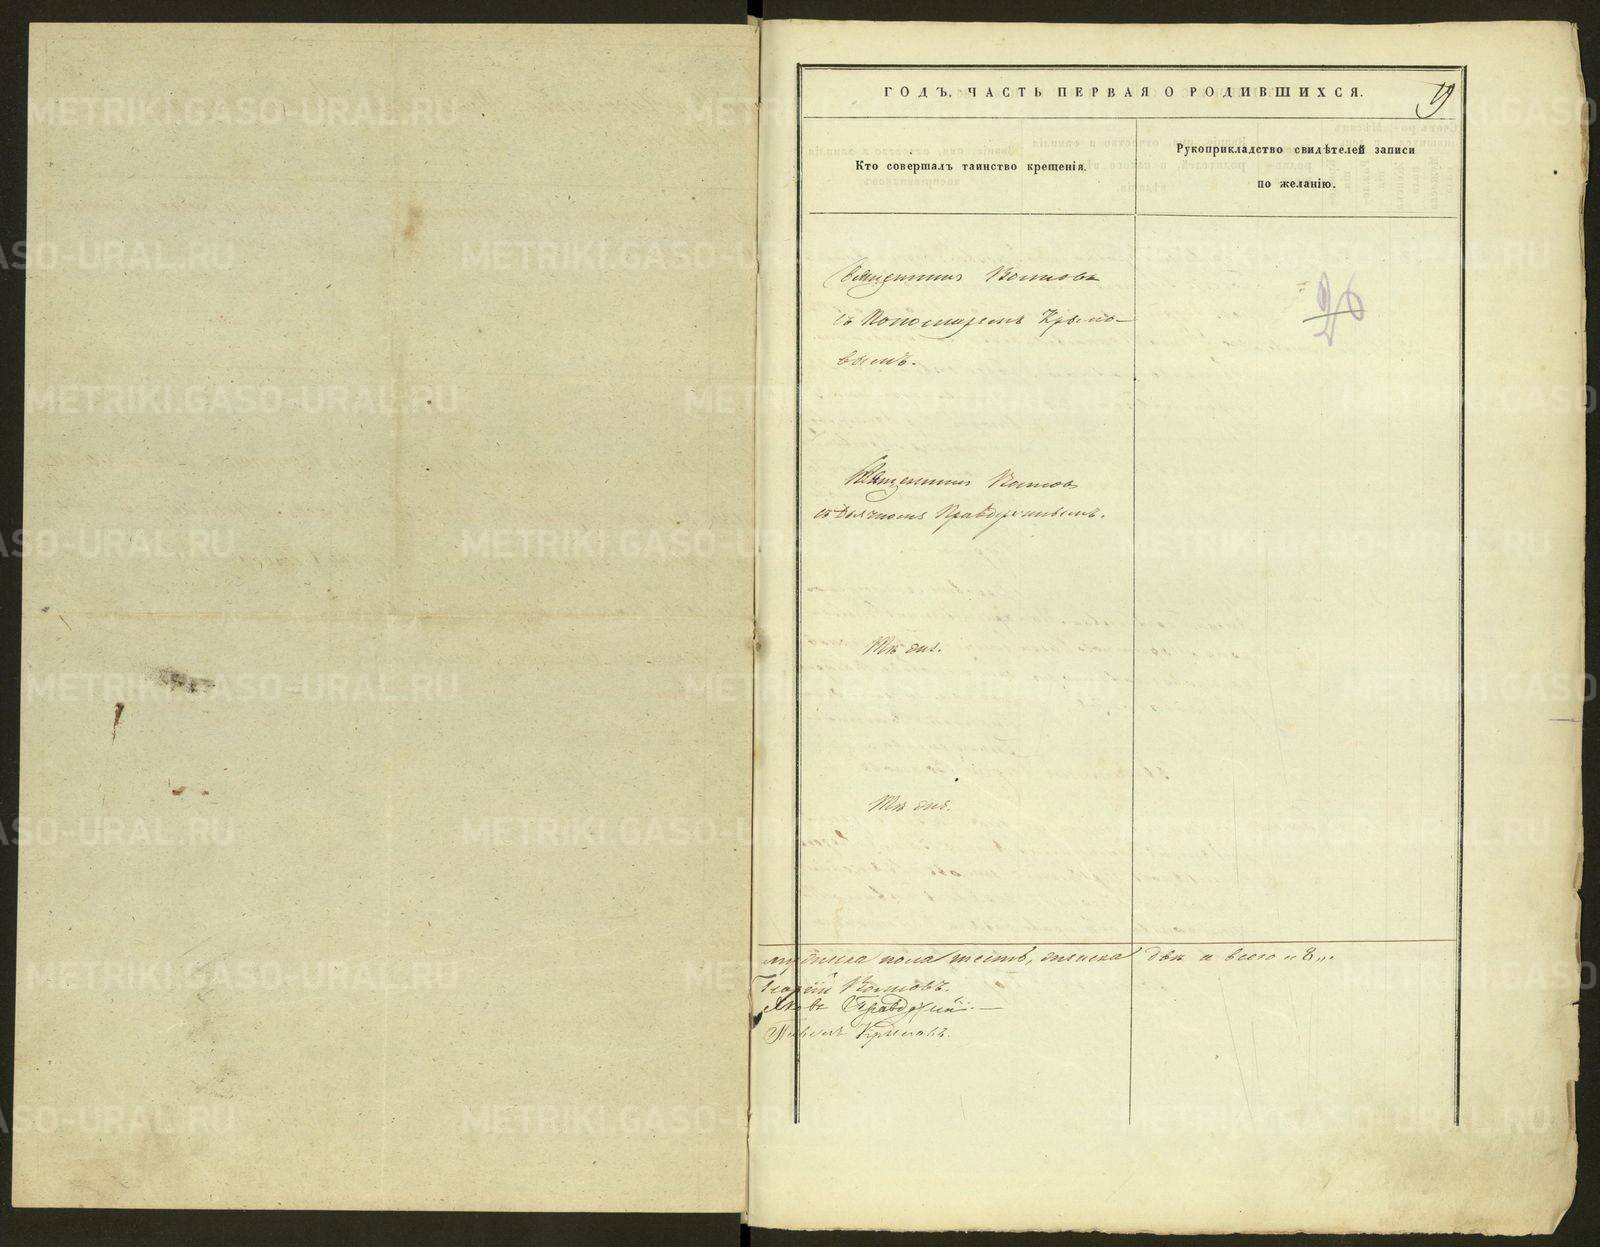 ГОДЪ, ЧАСТЬ ПЕРВАЯ О РОДИВШИХСЯ.
19
Кто совершалъ таинство крещенія.
Рукоприкладство свидѣтелей записи
по желанію.
Священникъ Поповъ
съ Пономаремъ Крыло-
вымъ.
26
Священникъ Поповъ
съ Дьячкомъ Правдухинымъ.
Тѣ же.
Тѣ же.
мужеска пола шесть, женска двѣ а всего "8".
Георгій Поповъ.
Яковъ Правдухинъ.
Павелъ Крыловъ.
METRIKI.GASO-URAL.RU